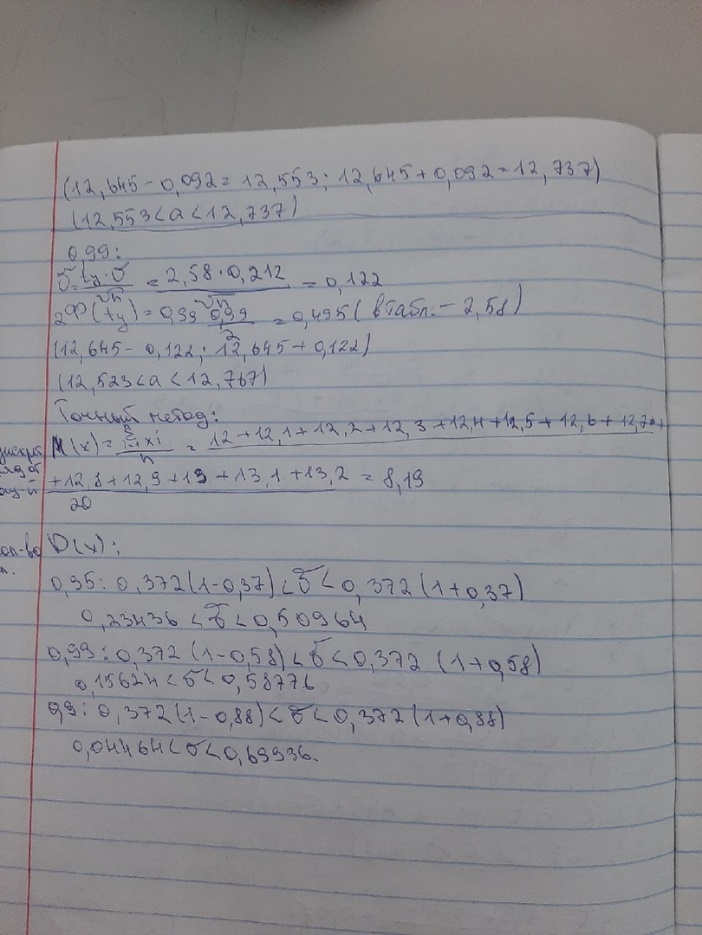 (12,645 - 0,092 = 12,553; 12,645 + 0,092 = 12,737)
(12,553 < a < 12,737)
0,99:
δ = tγ·σ/√n = 2,58·0,212/√n = 0,122
2Ф(tγ) = 0,99 0,99/2 = 0,495 (в табл. - 2,58)
(12,645 - 0,122; 12,645 + 0,122)
(12,523 < a < 12,767)
Точный метод:
M(x) = Σxi/n = 12+12,1+12,2+12,3+12,4+12,5+12,6+12,7+
+12,8+12,9+13+13,1+13,2/20 = 8,19
D(x):
0,95: 0,372(1-0,37) < σ < 0,372(1+0,37)
0,23436 < σ < 0,50964
0,99: 0,372 (1-0,58) < σ < 0,372 (1+0,58)
0,15624 < σ < 0,58776
0,9: 0,372(1-0,88) < σ < 0,372(1+0,88)
0,04464 < σ < 0,69936.